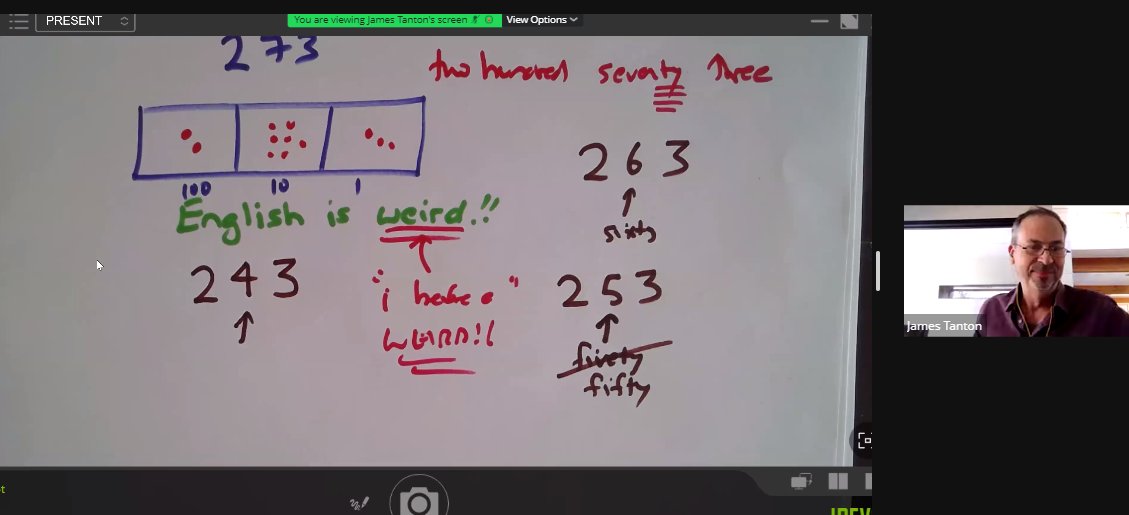 PRESENT
You are viewing James Tanton's screen
View Options
273
two hundred seventy three
100 10 1
English is weird!!
263
sixty
243
"i before e"
WEIRD!!
253
fivety
fifty
James Tanton